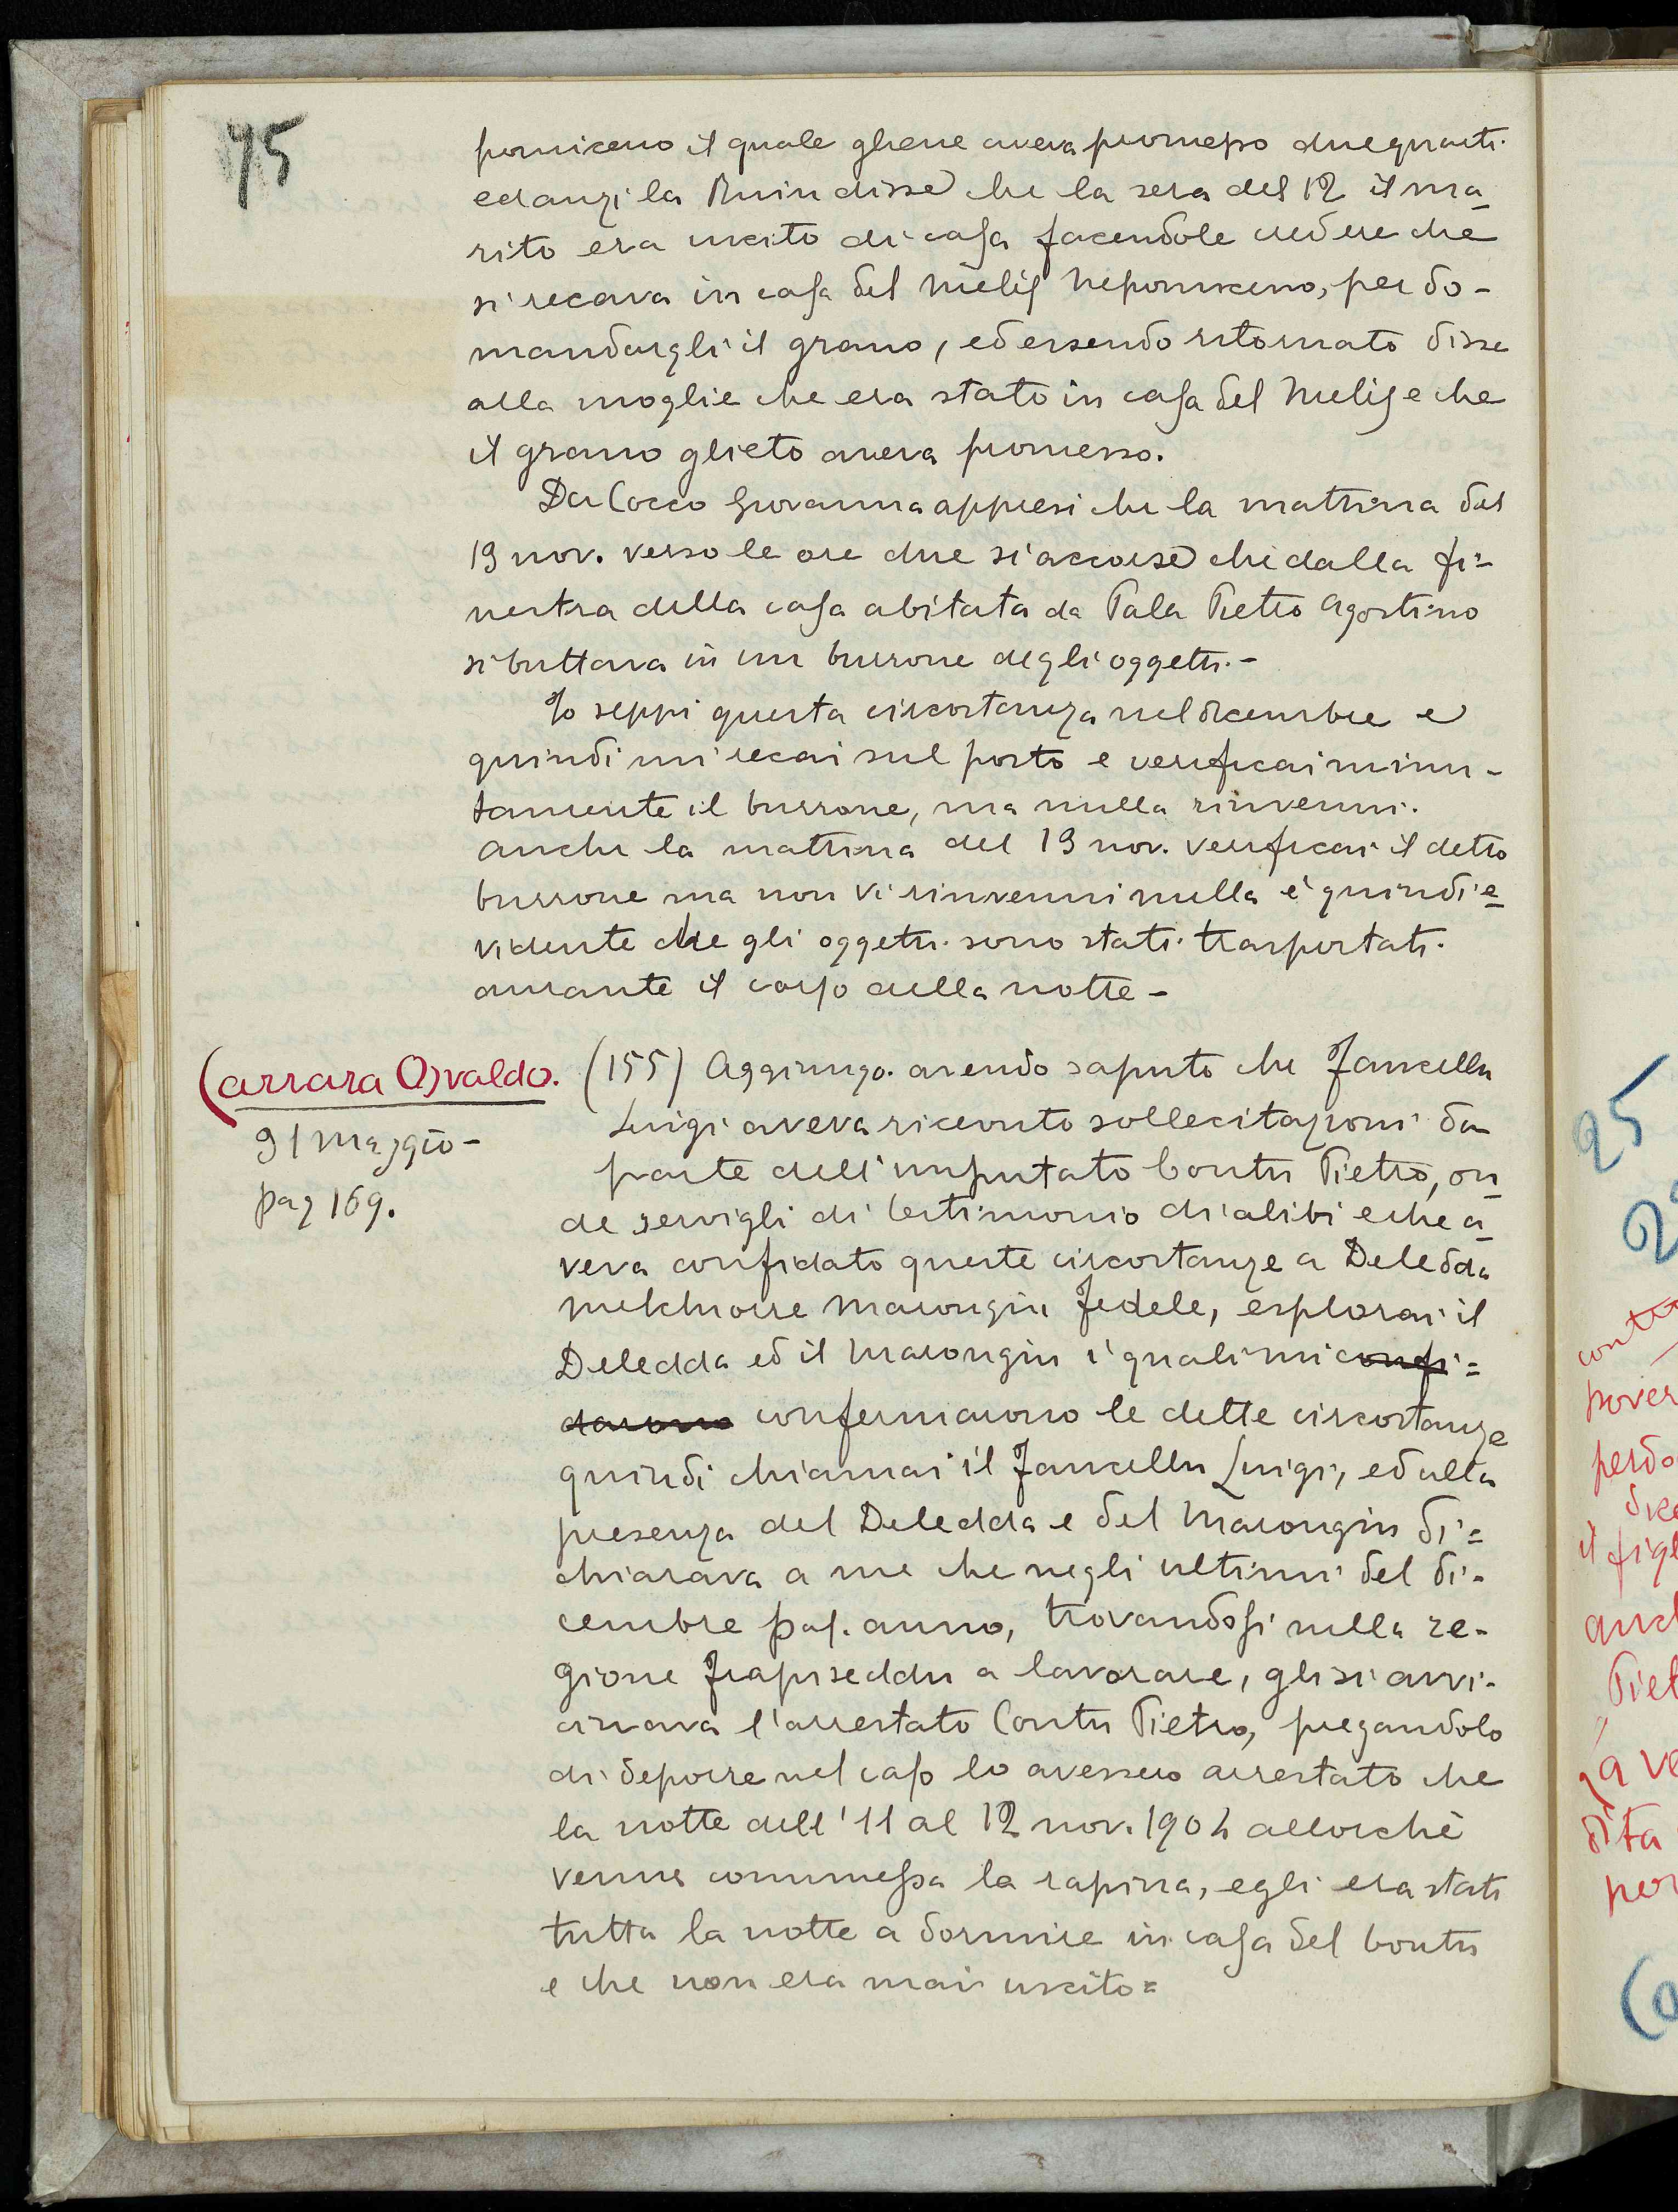 75
pomiceno il quale gliene aveva promesso due quarti.
ed anzi la Ruiu disse che la sera del 12 il ma-
rito era uscito di casa facendole credere che
si recava in casa del Melis Nepomiceno, per do-
mandargli il grano, ed essendo ritornato disse
alla moglie che era stato in casa del Melis e che
il grano glielo aveva promesso.
Da Cocco Giovanna appresi che la mattina del
13 nov. verso le ore due si accorse che dalla fi-
nestra della casa abitata da Pala Pietro Agostino
si buttava in un burrone degli oggetti.-
Io seppi questa circostanza nel dicembre e
quindi mi recai sul posto e verificai minu-
tamente il burrone, ma nulla rinvenni.
Anche la mattina del 13 nov. verificai il detto
burrone ma non vi rinvenni nulla è quindi e-
vidente che gli oggetti sono stati trasportati
durante il corso della notte -
Carrara Osvaldo.
31 maggio -
pag 169.
(155) Aggiungo. avendo saputo che Fancellu
Luigi aveva ricevuto sollecitazioni da
parte dell'imputato Contu Pietro, on-
de servigli di testimonio di alibi e che a-
veva confidato queste circostanze a Deledda
Melchiorre Marongiu Fedele, esplorai il
Deledda ed il Marongiu i quali mi confi-
darono confermarono le dette circostanze
quindi chiamai il Fancellu Luigi, ed alla
presenza del Deledda e del Marongiu di-
chiarava a me che negli ultimi del di-
cembre pas. anno, trovandosi nella re-
gione Frapiseddu a lavorare, gli si avvi-
cinava l'arrestato Contu Pietro, pregandolo
di deporre nel caso lo avessero arrestato che
la notte dell'11 al 12 nov. 1904 allorchè
venne commessa la rapina, egli era stato
tutta la notte a dormire in casa del Contu
e che non era mai uscito=
25
contr
pover
perdo
dice
il figl
anch
Piet
dita
per